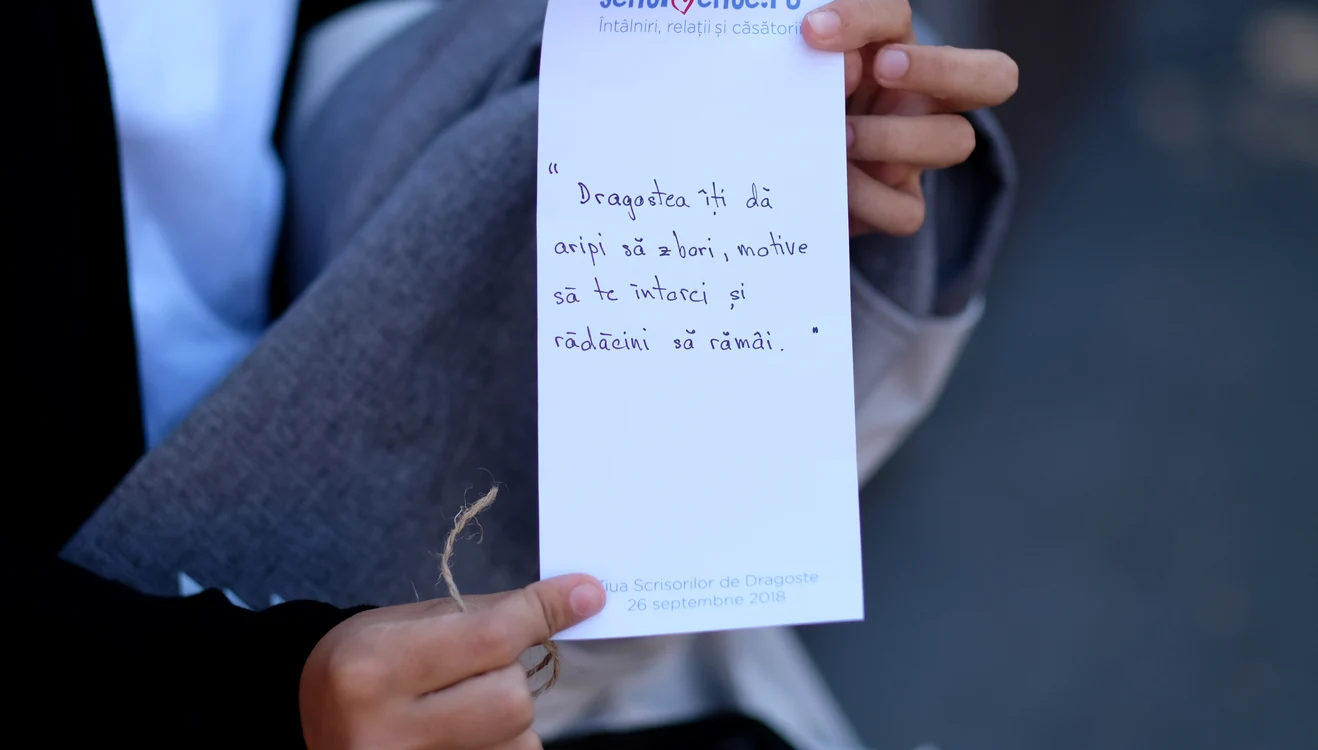 Întâlniri, relații și căsătorii
“
Dragostea îți dă
aripi să zbori, motive
să te întorci și
rădăcini să rămâi. "
Scrisorilor de Dragoste
26 septembrie 2018